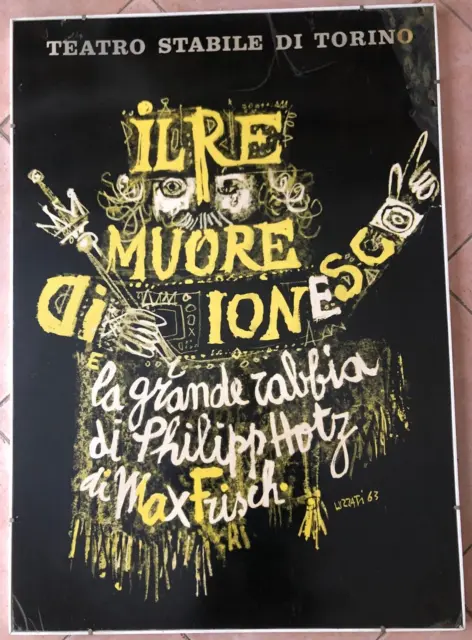 TEATRO STABILE DI TORINO
iL RE
MUORE
Di IONESCO
E
la grande rabbia
di Philipp Hotz
di Max Frisch.
LUZZATI 63